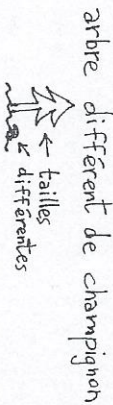 arbre différent de champignon
← tailles
↙ différentes